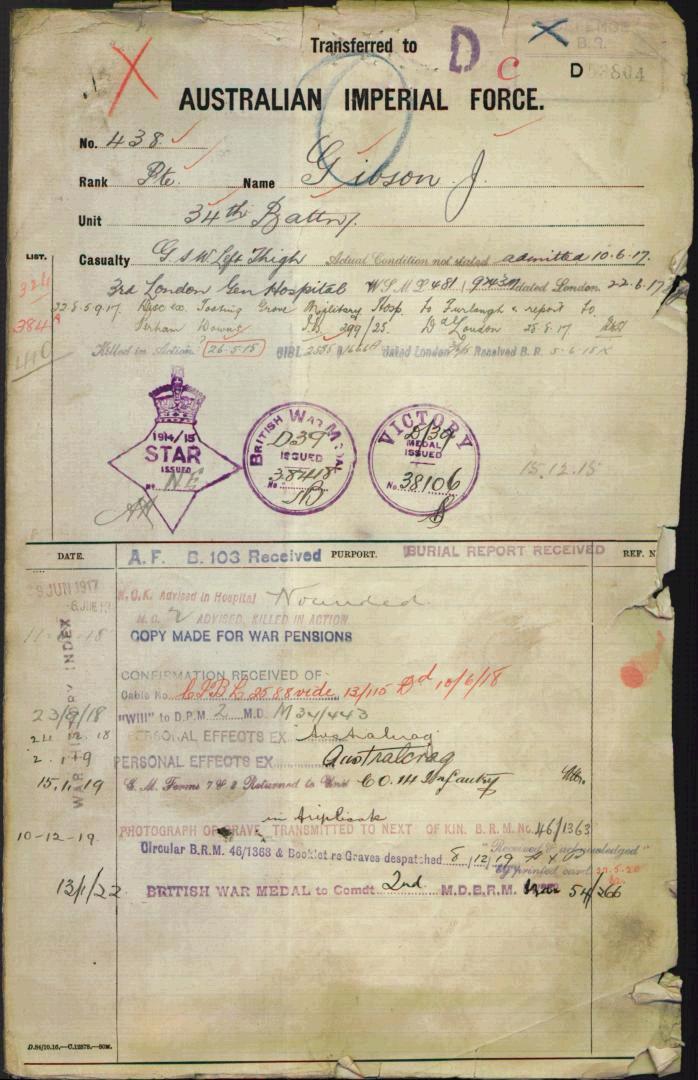 Transferred to D
C
D
AUSTRALIAN IMPERIAL FORCE.
No. 438
Rank Pte. Name Gibson J.
Unit 34th Battn.
LIST.
Casualty G S W Left Thigh Actual Condition not stated admitted 10.6.17.
324
3rd London Gen Hospital dated London 22.6.17
384
Tooting Grove Military Hosp. to Furlough & report to
Perham Downs 299/25. Dd London 28.8.17
440
Killed in Action 26-5-18 dated London Received B.R. 5-6-18
1914/15
STAR
ISSUED
No. NE
BRITISH WAR MEDAL
D39
ISSUED
No. 38418
VICTORY
D/39
MEDAL
ISSUED
No. 38106
15.12.18
DATE. PURPORT. REF. N
A.F. B.103 Received BURIAL REPORT RECEIVED
JUN 1917
WAR HISTORY INDEX
N.O.K. Advised in Hospital Wounded
M.C. 2 ADVISED, KILLED IN ACTION
COPY MADE FOR WAR PENSIONS
CONFIRMATION RECEIVED OF
Cable No. 2588 vide 13/115 Dd 10/6/18
23/9/18 "Will" to D.P.M. 2 M.D. M34/443
PERSONAL EFFECTS EX
PERSONAL EFFECTS EX Australcrag
15.11.19 G.M. Forms 7 & 8 Returned to
10-12-19 PHOTOGRAPH OF GRAVE TRANSMITTED TO NEXT OF KIN. B.R.M. No. 46/1363
Circular B.R.M. 46/1363 & Booklet re Graves despatched 8/12/19
"Received & acknowledged"
by printed card
13/1/22 BRITISH WAR MEDAL to Comdt 2nd M.D.B.R.M. 54/266
D.84/10.16.—C.12878.—50M.